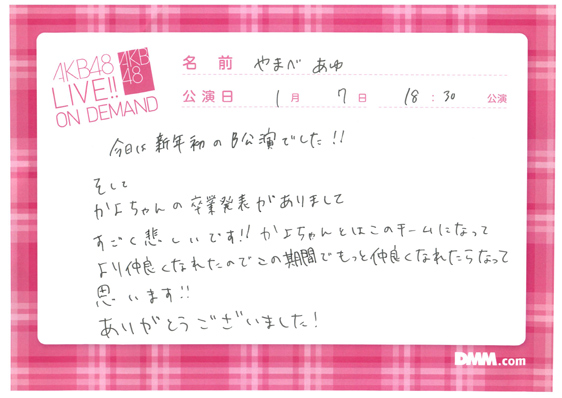 AKB48
LIVE!!
ON DEMAND
AKB
48
名 前 やまべ あゆ
公演日 1月 7日 18:30 公演
今日は新年初のB公演でした!!
そして
かよちゃんの卒業発表がありまして
すごく悲しいです!! かよちゃんとはこのチームになって
より仲良くなれたのでこの期間でもっと仲良くなれたらなって
思います!!
ありがとうございました!
DMM.com